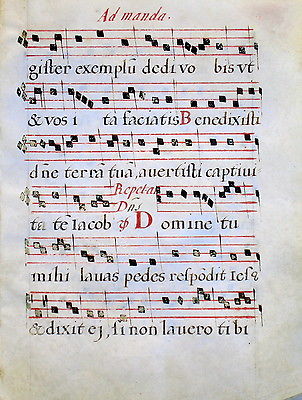 Ad manda.
gister exemplū dedi vo bis vt
& vos i ta faciatis Benedixisti
dñe terrā tuā, avertisti captivi
Repetat
Dñs
ta tē Iacob Domine tu
mihi lavas pedes respōdit Ies9
& dixit ej, si non lavero tibi